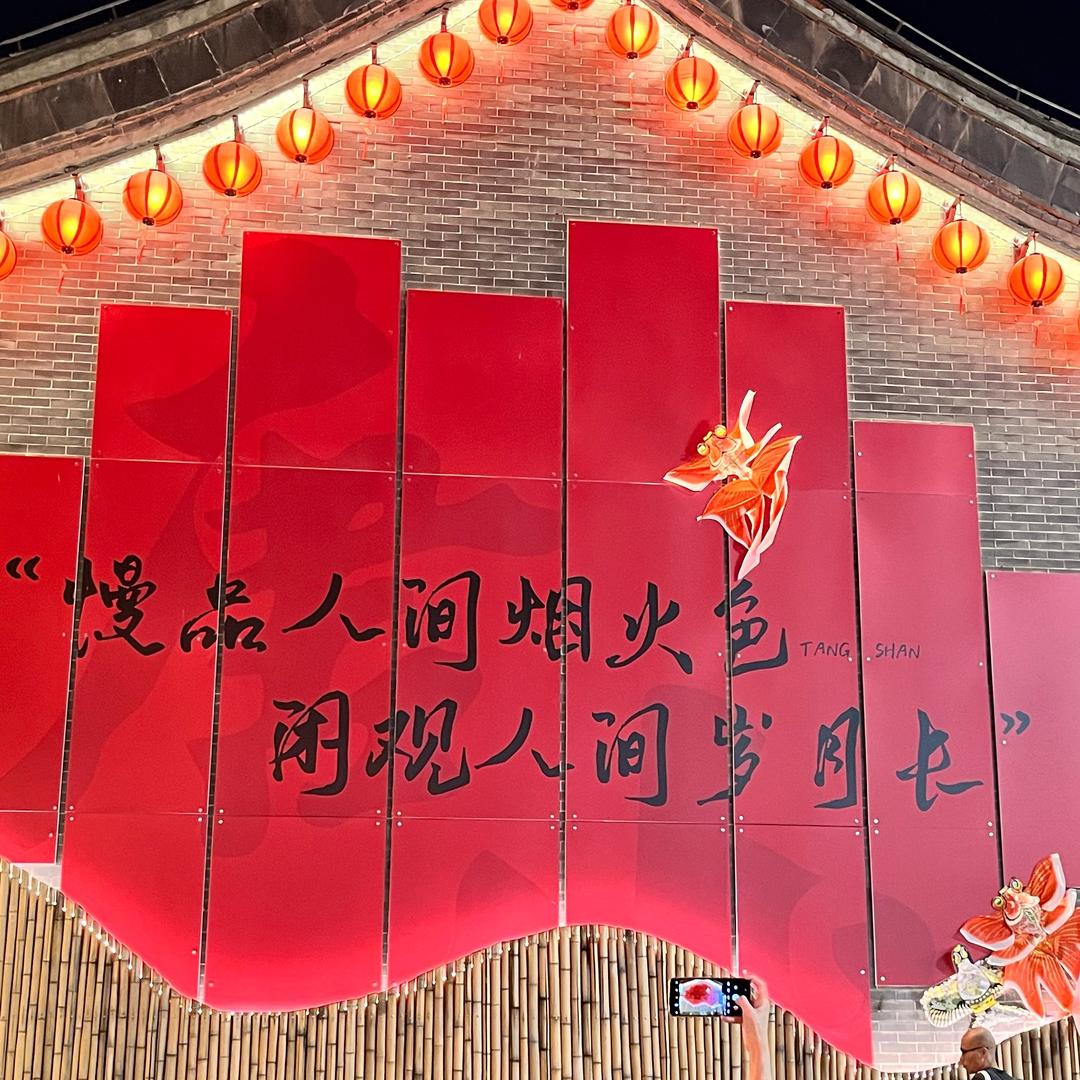 “慢品人间烟火色 TANG SHAN
闲观人间岁月长”